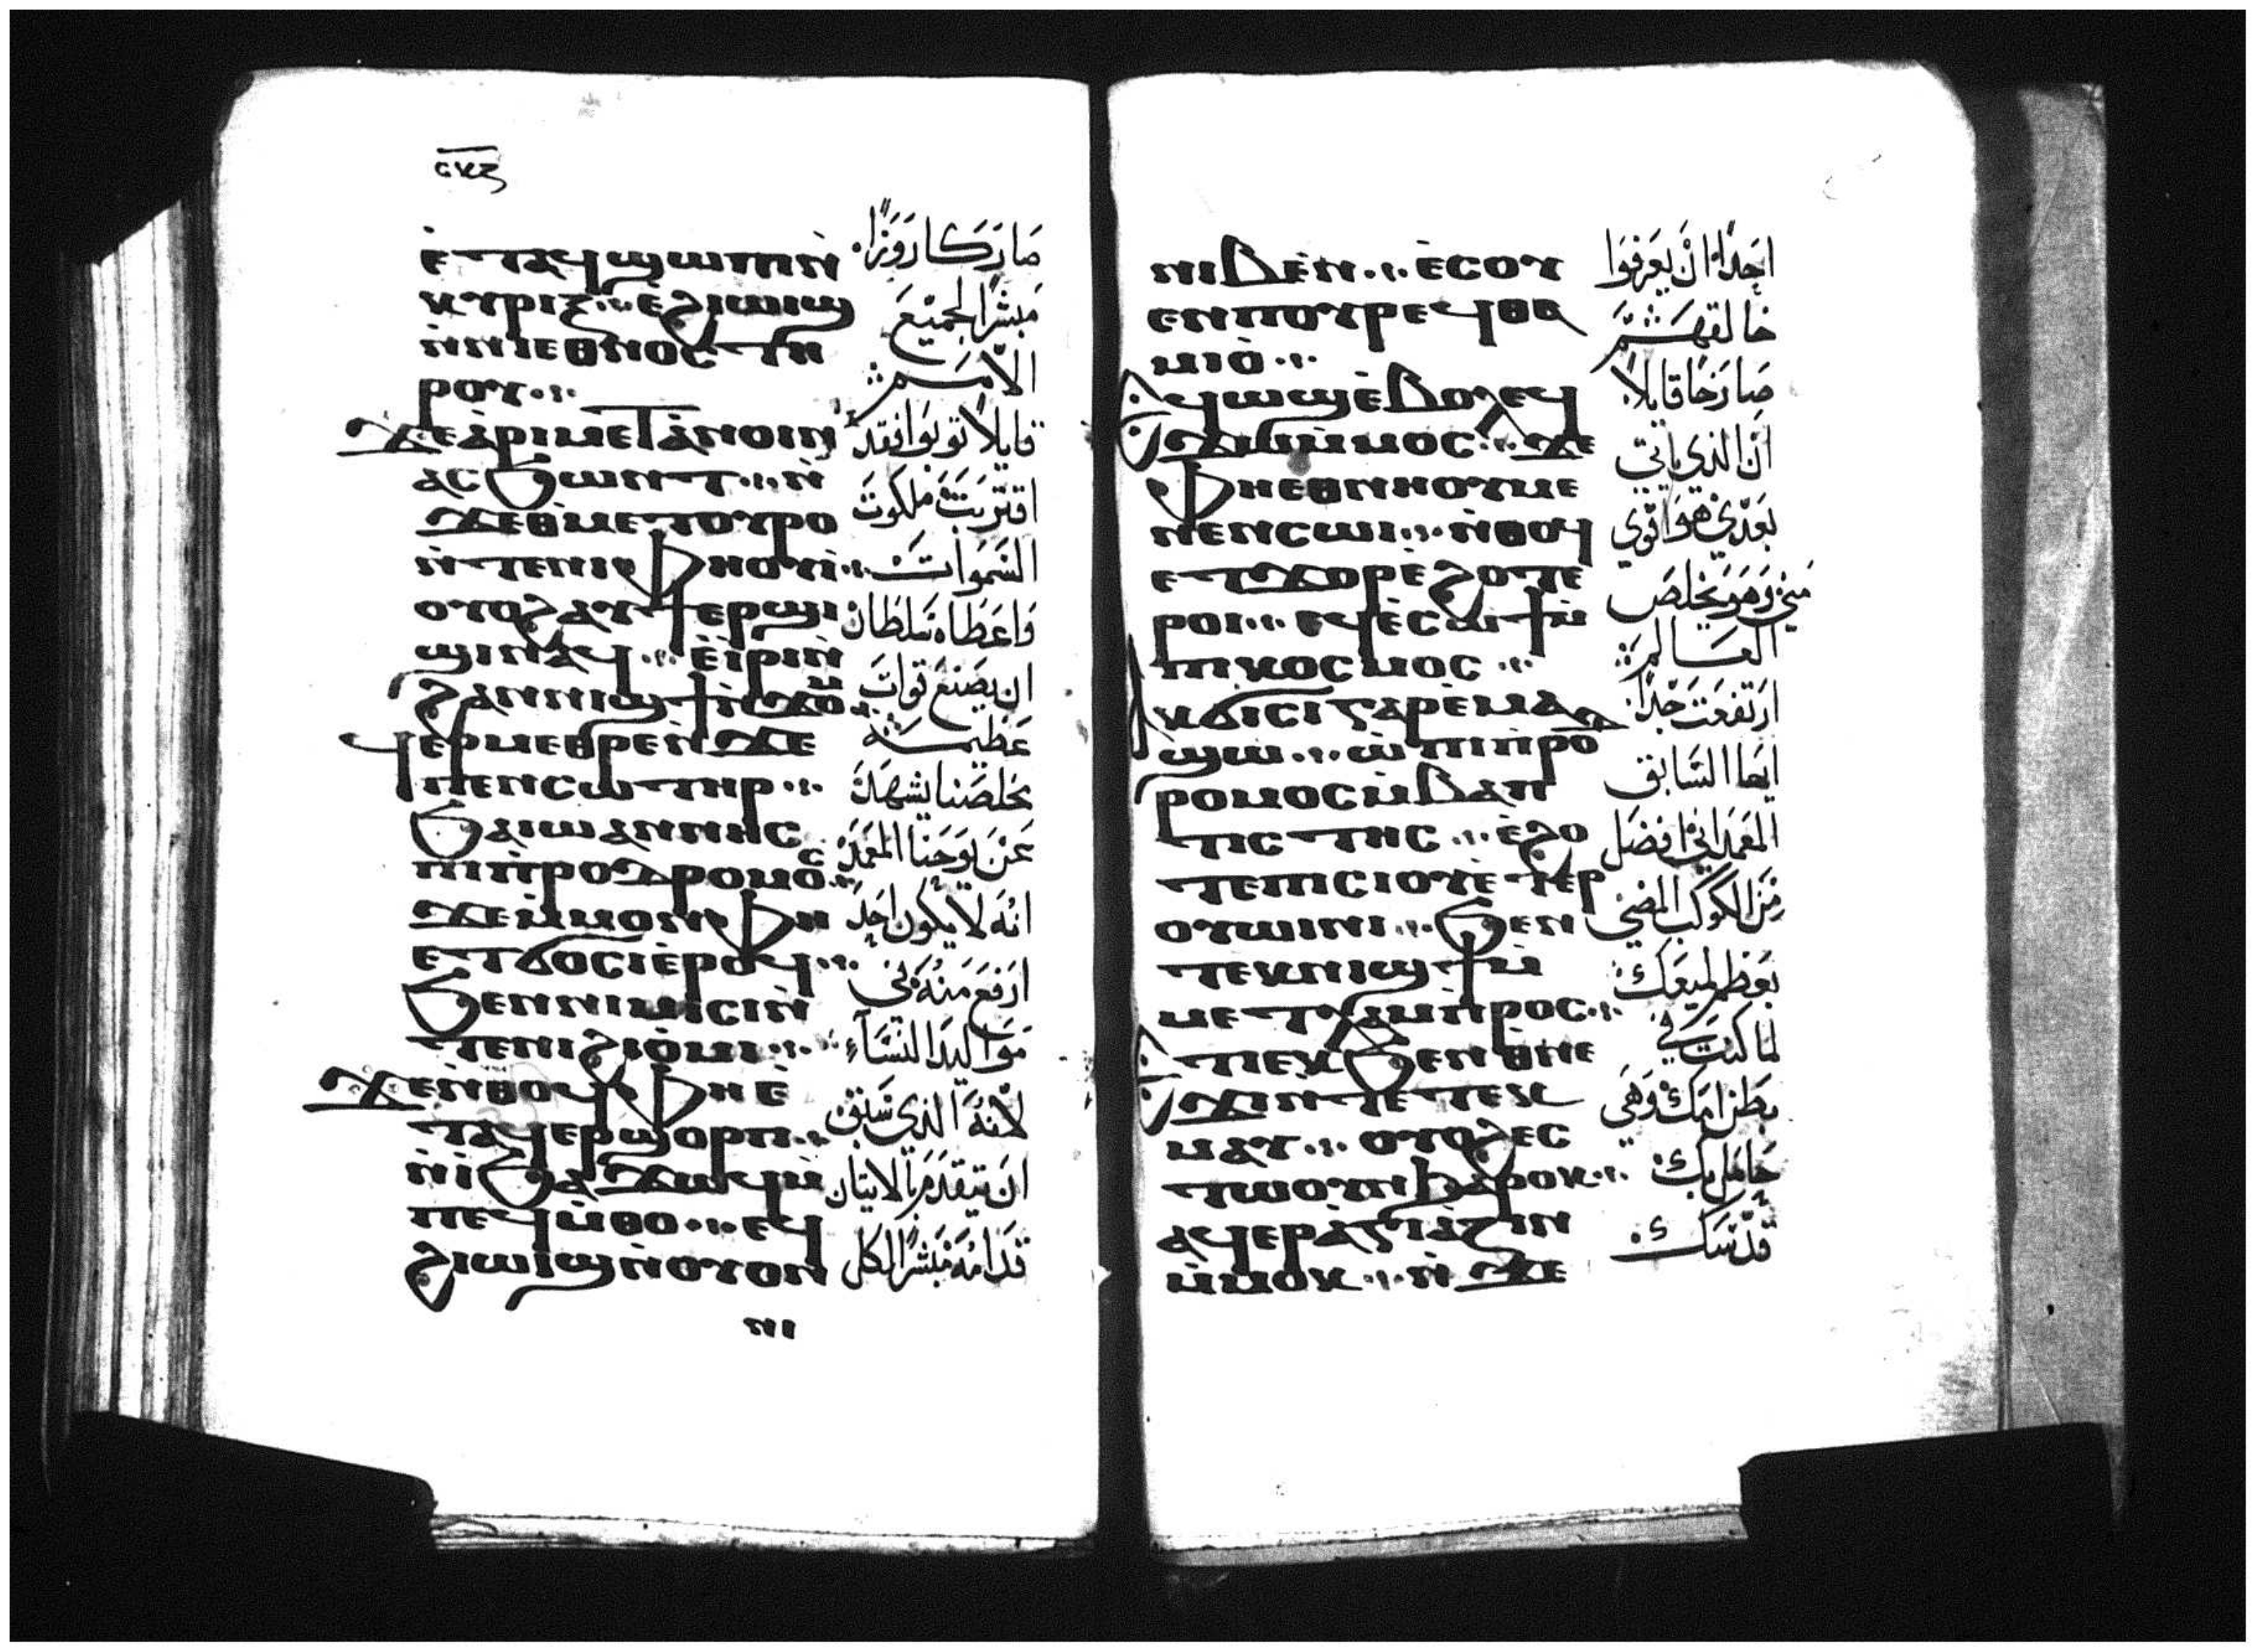 ⲥⲩⲍ
ⲉ̀ⲧⲁϥϣⲱⲡⲓⲛ̀
ⲕⲩⲣⲓⲝ ⁖ ⲉ̀ϩⲓⲱⲓϣ
ⲛ̀ⲛⲓⲉⲑⲛⲟⲥ ⲧⲏ
ⲣⲟⲩ ⁖
ϫⲉⲁ̀ⲣⲓⲙⲉⲧⲁ̀ⲛⲟⲓⲛ
ⲁⲥϧⲱⲛⲧ ⁖ ⲛ̀
ϫⲉⲑⲙⲉⲧⲟⲩⲣⲟ
ⲛ̀ⲧⲉⲛⲓⲫⲏⲟⲩⲓ̀ ⁖
ⲟⲩⲟϩⲁⲩϯⲉⲣϣⲓ
ϣⲓⲛⲁϥ ⁖ ⲉ̀ⲓ̀ⲣⲓⲛ̀
ϩⲁⲛⲛⲓϣϯⲛ̀ϫⲟⲙ
ϥⲉⲣⲙⲉⲑⲣⲉⲛ̀ϫⲉ
ⲡⲉⲛⲥⲱⲧⲏⲣ ⁖
ϧⲁⲓⲱⲁⲛⲛⲏⲥ
ⲡⲓⲡ̀ⲣⲟⲇⲣⲟⲙⲟⲥ ⁖
ϫⲉⲙ̀ⲙⲟⲛⲫⲏ
ⲉⲧϭⲟⲥⲓⲉ̀ⲣⲟϥ ⁖
ϧⲉⲛⲛⲓⲙⲓⲥⲓⲛ̀
ⲧⲉⲛⲓϩⲓⲟ̀ⲙⲓ ⁖
ϫⲉⲛ̀ⲑⲟϥⲫⲏⲉ̀
ⲧⲁϥⲉⲣϣⲟⲣⲡ ⁖
ⲛ̀ⲓ̀ϧⲁϫⲱϥⲙ̀
ⲡⲉϥⲙ̀ⲑⲟ ⁖ ⲉϥ
ϩⲓⲱⲓϣⲛ̀ⲟⲩⲟⲛ
ⲛⲓ
صَار كَارُوزًا
مبشرًا لجميع
الامم
قايلا توبوا فقد
اقتربت ملكوت
السموات
واعطاه سلطان
ان يصنع قوات
عظيمة
مخلصنا يشهد
عن يوحنا المعمد
انه لا يكون احد
ارفع منه في
مواليد النسآء
لانه الذي سبق
ان يتقدم بالاتيان
قدامه مبشرًا لكل
ⲛⲓⲃⲉⲛ ⁖ ⲉ̀ⲥⲟⲩ
ⲉⲛⲡⲟⲩⲣⲉϥⲑⲁ
ⲙⲓⲟ̀ ⁖
ϥⲱϣⲉ̀ⲃⲟⲗⲉϥ
ϫⲱⲙ̀ⲙⲟⲥ ⁖ ϫⲉ
ⲫⲏⲉⲑⲛⲏⲟⲩⲙⲉ
ⲛⲉⲛⲥⲱⲓ ⁖ ⲛ̀ⲑⲟϥ
ⲉⲧϫⲟⲣⲉ̀ϩⲟⲧⲉ
ⲣⲟⲓ ⁖ ⲉϥⲉ̀ⲥⲱϯⲙ̀
ⲡⲓⲕⲟⲥⲙⲟⲥ ⁖
ⲕϭⲓⲥⲓⲅⲁⲣⲉ̀ⲙⲁ
ϣⲱ ⁖ ⲱ̀ⲡⲓⲡ̀ⲣⲟⲇ
ⲣⲟⲙⲟⲥⲙ̀ⲃⲁⲡ
ⲧⲓⲥⲧⲏⲥ ⁖ ⲉ̀ϩⲟ
ⲧⲉⲡⲓⲥⲓⲟⲩⲉ̀ⲧⲉⲣ
ⲟⲩⲱⲓⲛⲓ ⁖ ϧⲉⲛ
ⲧⲉⲕⲛⲓϣϯⲙ̀
ⲙⲉⲧⲗⲁⲙⲡ̀ⲣⲟⲥ ⁖
ⲡⲉⲕϫⲓⲛ
ϧⲉⲛⲑⲛⲉ
ϫⲓⲛ̀ⲧⲉⲧⲉⲕ
ⲙⲁⲩ ⁖ ⲟⲩⲟϩⲉⲥ
ⲧⲱⲟⲩⲛϧⲁⲣⲟⲕ ⁖
ⲁϥⲉⲣⲁ̀ⲅⲓⲁ̀ⲍⲓⲛ
ⲙ̀ⲙⲟⲕ ⁖ ⲛ̀ϫⲉ
احدًا ان يعرفوا
خالقهم
صارخًا قايلاً
ان الذي ياتي
بعدي هو اقوي
مني وهو يخلص
العالم
ارتفعت جدًا
ايها السابق
المعمداني افضل
من الكوكب المضي
بعظم لميعك
لما كنت في
بطن امك وهي
حامل بك
قدسك